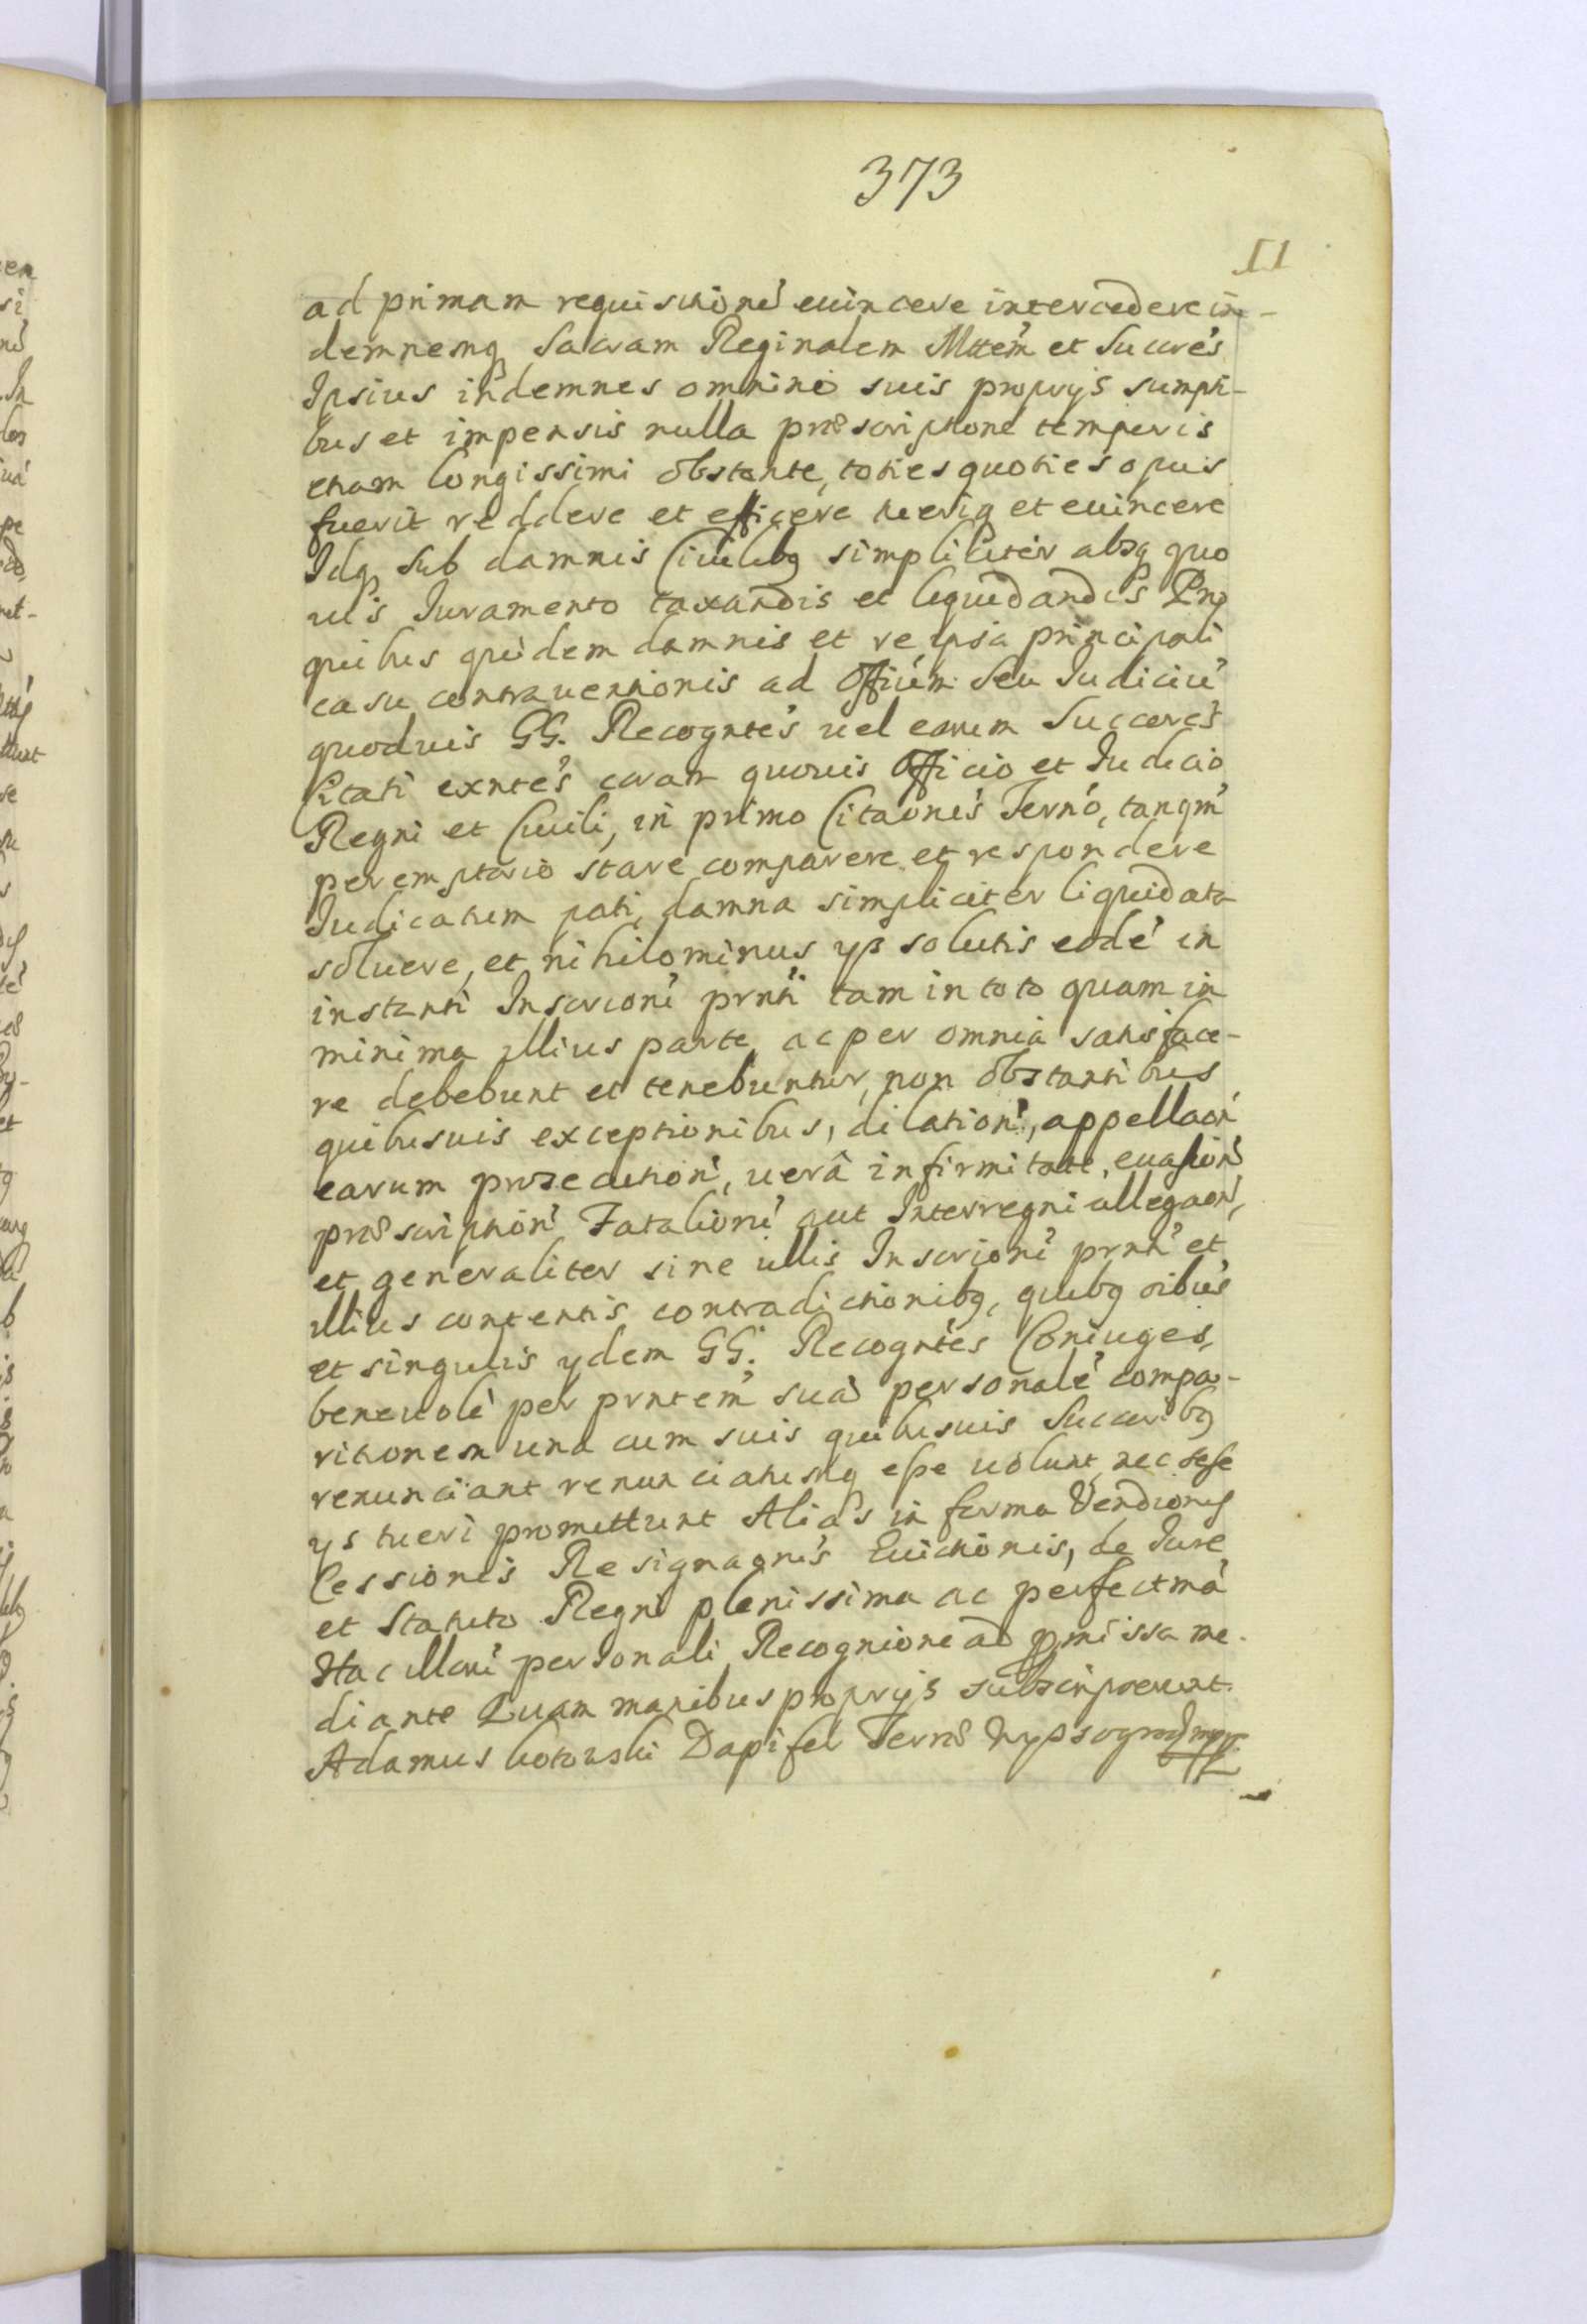 373
II
ad primam requisitioné euincere intercedere in-
demnemq Sacram Reginalem Mttem et Succrés
Ipsius indemnes omnino suis proprijs sumpti-
bus et impensis nulla præscriptione temporis
etiam longissimi obstante, toties quoties opus
fuerit reddere et efficere tueriq et euincere
Idq sub damnis Ciuilibq simpliciter absq quo
uis Iuramento taxandis et liquidandis Pro
quibus quidem damnis et re ipsa principali
casu contrauentionis ad Offium Seu Iudiciú
quoduis GG. Recogntes uel eorum Succores
Citati exntes coram quouis Officio et Iudicio
Regni et Ciuili, in primo Citaonis Termo, tanqm
peremptorio stare comparere et respondere
Iudicatum pati, damna simpliciter liquidata
soluere, et nihilominus ijs solutis eodé in
instanti Inscrioni prnti tam in toto quam in
minima illius parte, ac per omnia satisface-
re debebunt et tenebuntur, non obstantibus
quibusuis exceptionibus, dilation, appellaon
earum prosecution, uerâ infirmitate, euasion
præscription Fatalioni aut Interregni allegaon,
et generaliter sine ullis Inscrioni prnti et
illius contentis contradictionibq, quibq oibus
et singulis ydem GG. Recogntes Coniuges,
beneuolé per prntem suá personalé compa-
ritionem una cum suis quibusuis Succoribq
renunciant renunciatumq esse uolunt, nec sese
ys tueri promittunt Alias in forma Vendionis
Cessionis Resignaonis Euictionis, de Iure
et Statuto Regni plenissima ac perfectmá
Hac illoru personali Recognione ad pmissa me-
diante Quam manibus proprijs subscripserunt.
Adamus Kotowski Dapifer Terræ Wyssogrod mpp.